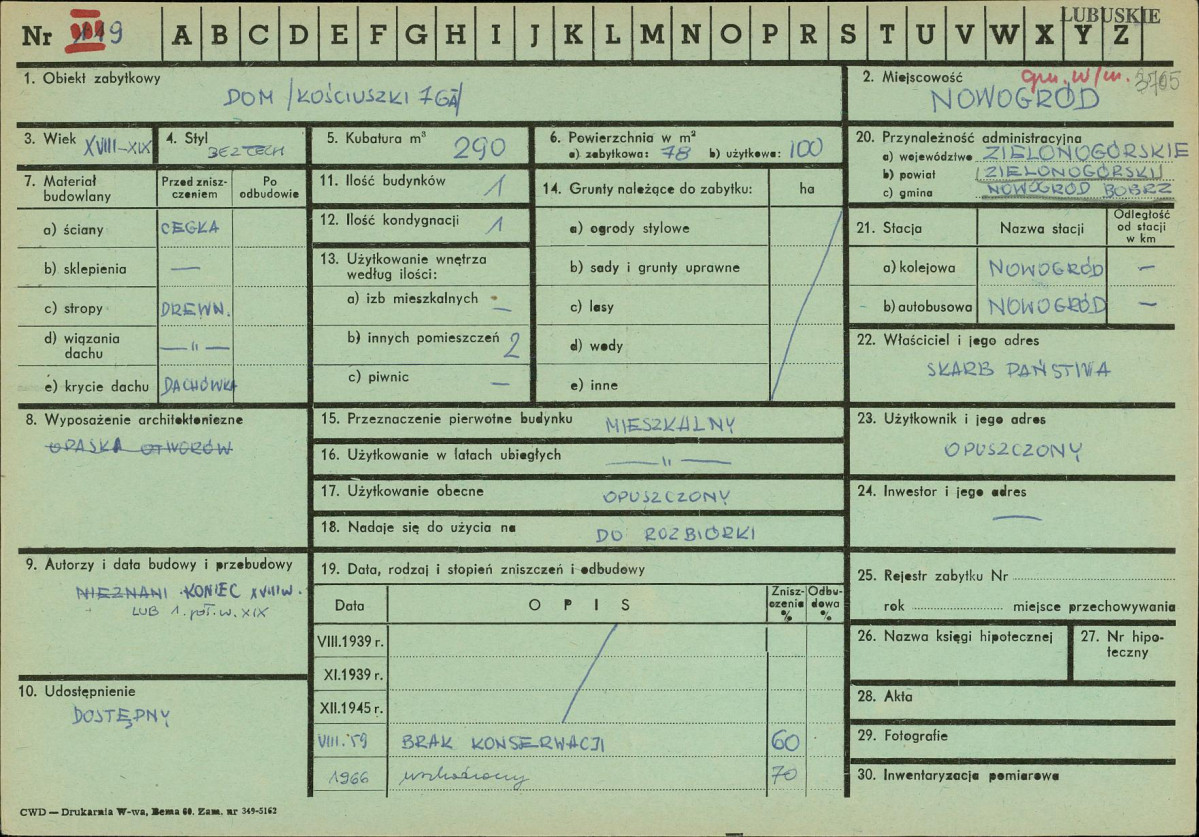 LUBUSKIE
Nr 9 A B C D E F G H I J K L M N O P R S T U V W X Y Z
1. Obiekt zabytkowy
DOM /KOŚCIUSZKI
2. Miejscowość gm. w/m. 3705
NOWOGRÓD
3. Wiek XVIII-XIX
4. Styl
BEZ CECH
5. Kubatura m³ 290
6. Powierzchnia w m²
a) zabytkowa: 78 b) użytkowa: 100
20. Przynależność administracyjna
a) województwo ZIELONOGÓRSKIE
b) powiat ZIELONOGÓRSKI
c) gmina NOWOGRÓD BOBRZ
7. Materiał budowlany
Przed znisz-
czeniem
Po
odbudowie
a) ściany CEGŁA
b) sklepienia —
c) stropy DREWN.
d) wiązania
dachu —"—
e) krycie dachu DACHÓWKA
11. Ilość budynków 1
12. Ilość kondygnacji 1
13. Użytkowanie wnętrza
według ilości:
a) izb mieszkalnych —
b) innych pomieszczeń 2
c) piwnic —
14. Grunty należące do zabytku: ha
a) ogrody stylowe
b) sady i grunty uprawne
c) lasy
d) wody
e) inne
21. Stacja Nazwa stacji
Odległość
od stacji
w km
a) kolejowa NOWOGRÓD —
b) autobusowa NOWOGRÓD —
22. Właściciel i jego adres
SKARB PAŃSTWA
8. Wyposażenie architektoniczne
OPASKA OTWORÓW
15. Przeznaczenie pierwotne budynku MIESZKALNY
16. Użytkowanie w latach ubiegłych —"—
17. Użytkowanie obecne OPUSZCZONY
18. Nadaje się do użycia na DO ROZBIÓRKI
23. Użytkownik i jego adres
OPUSZCZONY
24. Inwestor i jego adres
—
9. Autorzy i data budowy i przebudowy
NIEZNANI KONIEC XVIII W.
LUB 1. poł. w. XIX
10. Udostępnienie
DOSTĘPNY
19. Data, rodzaj i stopień zniszczeń i odbudowy
Data OPIS
Znisz-
czenia
%
Odbu-
dowa
%
VIII.1939 r.
XI.1939 r.
XII.1945 r.
VIII.59 BRAK KONSERWACJI 60
1966 70
25. Rejestr zabytku Nr
rok miejsce przechowywania
26. Nazwa księgi hipotecznej
27. Nr hipo-
teczny
28. Akta
29. Fotografie
30. Inwentaryzacja pomiarowa
CWD — Drukarnia W-wa, Bema 60. Zam. nr 349-5162